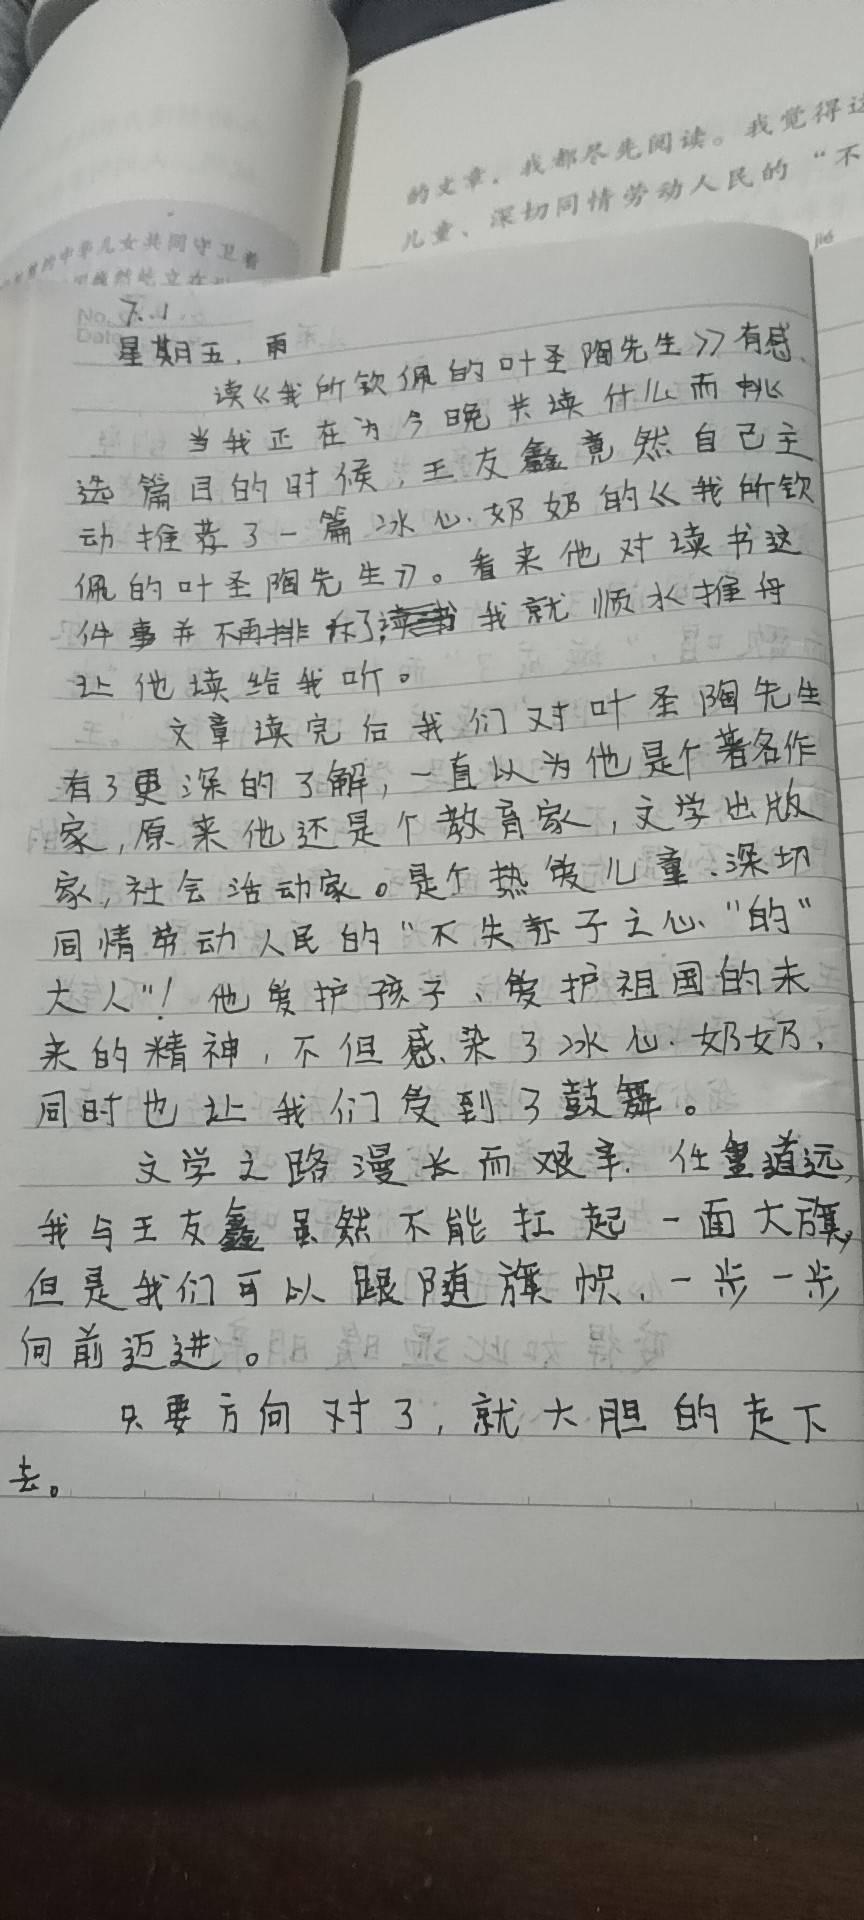 的文章，我都尽先阅读。我觉得这
儿童、深切同情劳动人民的“不
116
的中华儿女共同守卫着
No.
Date
7.1
星期五，雨
读《我所钦佩的叶圣陶先生》有感
当我正在为今晚共读什么而挑
选篇目的时候，王友鑫竟然自己主
动推荐了一篇冰心奶奶的《我所钦
佩的叶圣陶先生》。看来他对读书这
件事并不再排斥了，我就顺水推舟
让他读给我听。
文章读完后我们对叶圣陶先生
有了更深的了解，一直以为他是个著名作
家，原来他还是个教育家，文学出版
家，社会活动家。是个热爱儿童、深切
同情劳动人民的“不失赤子之心”的“
大人”！他爱护孩子、爱护祖国的未
来的精神，不但感染了冰心奶奶，
同时也让我们受到了鼓舞。
文学之路漫长而艰辛，任重道远，
我与王友鑫虽然不能扛起一面大旗，
但是我们可以跟随旗帜，一步一步
向前迈进。
只要方向对了，就大胆的走下
去。